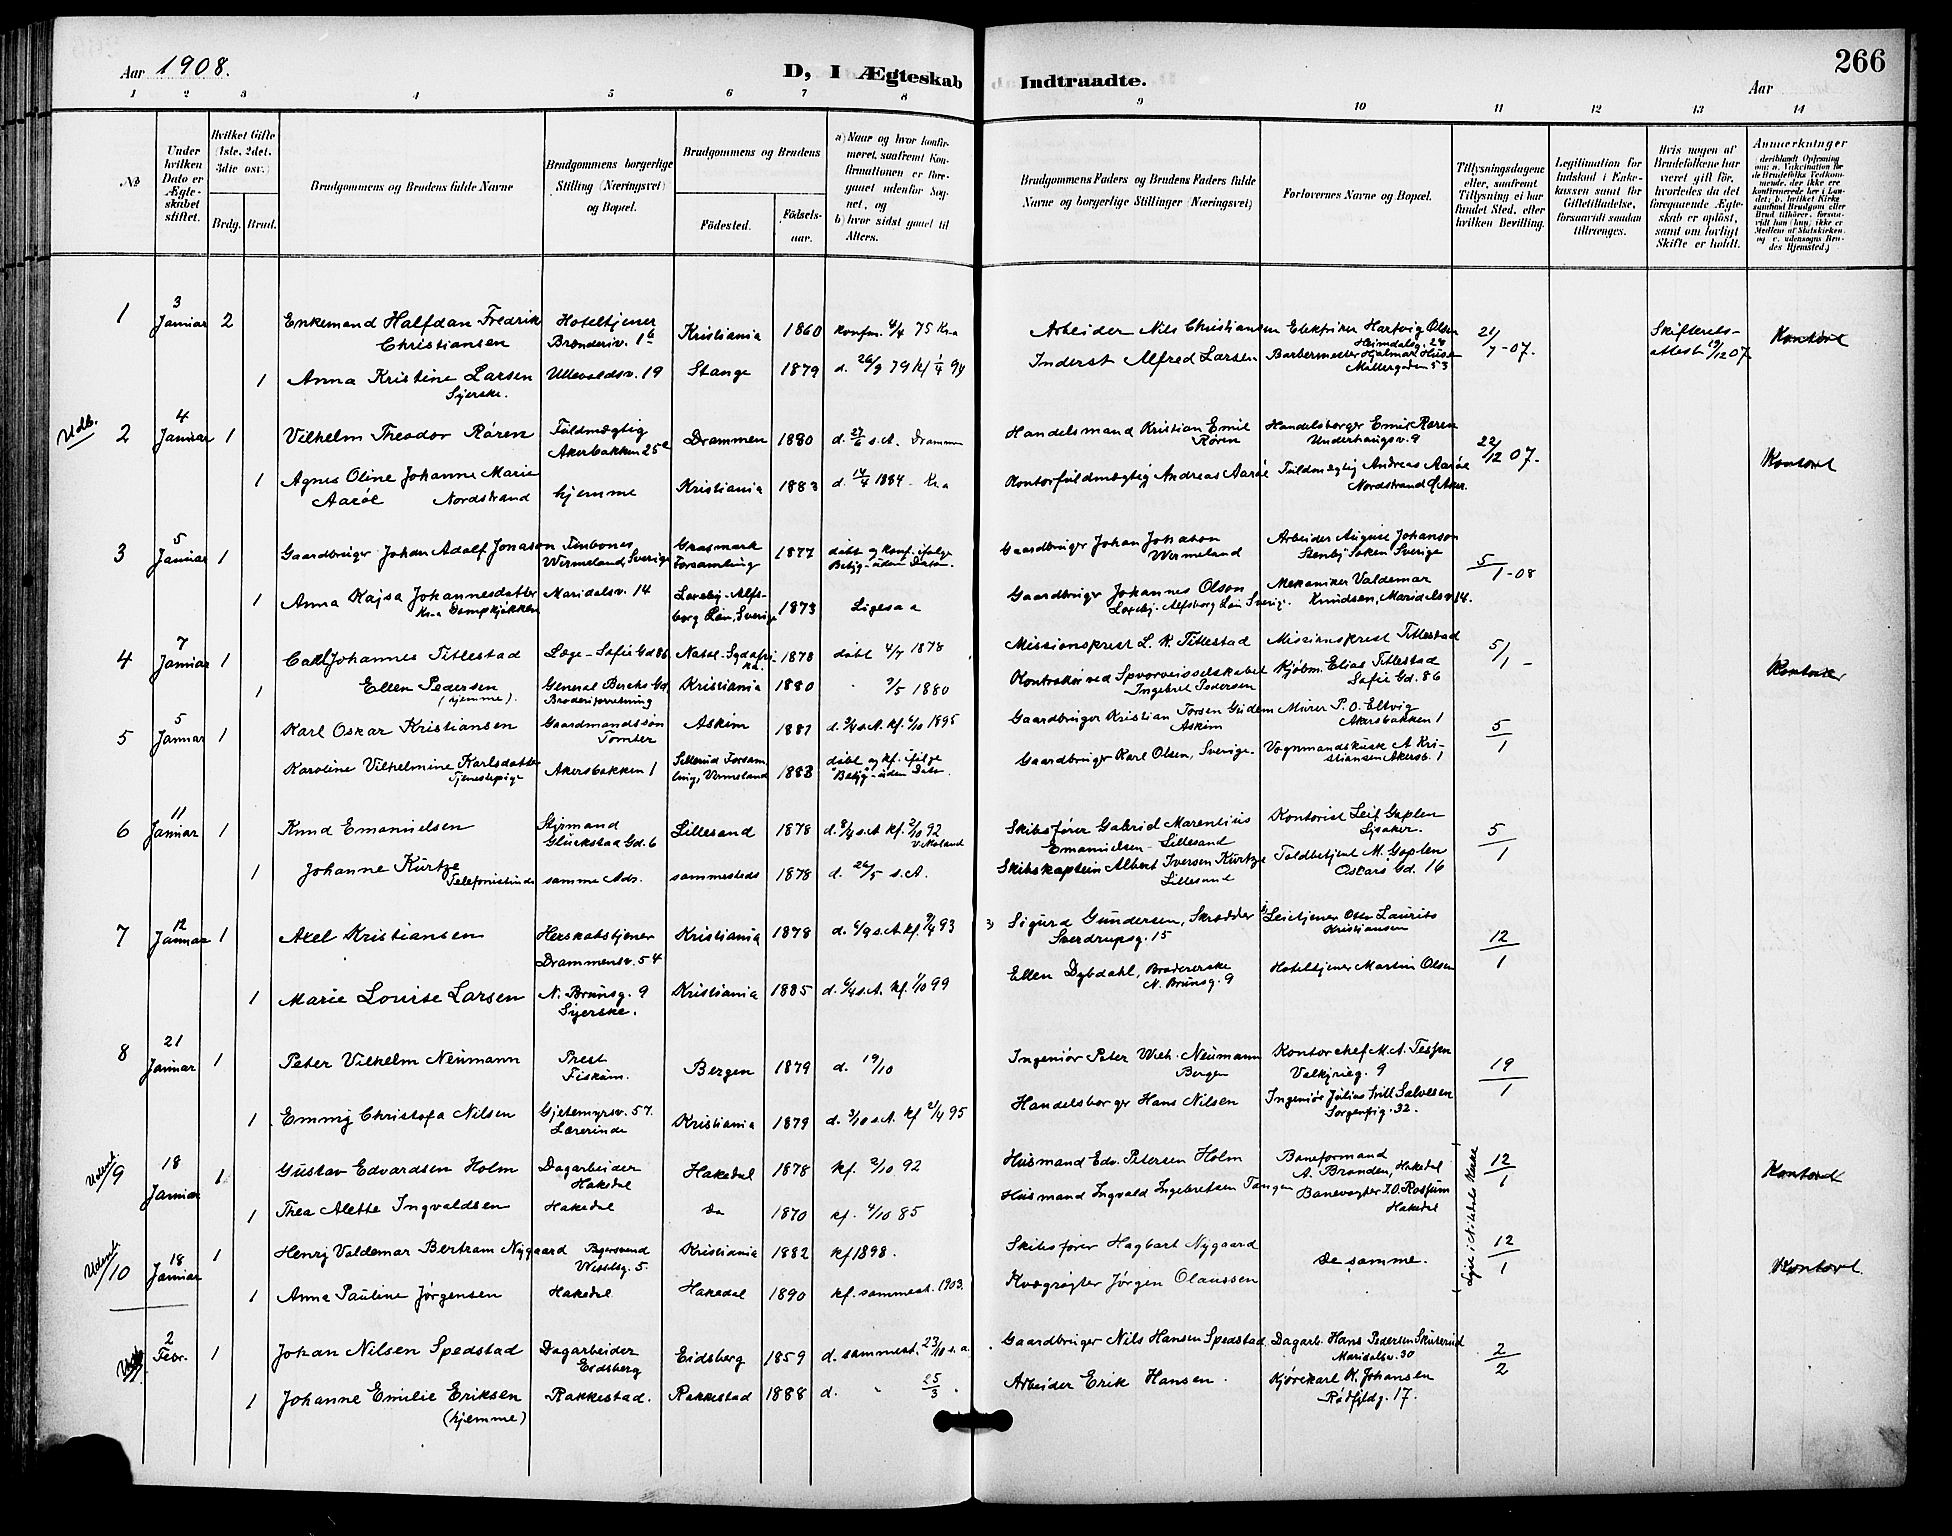 Aar 1908.
D, I Ægteskab Indtraadte.
266
Aar
1 2 3 4 5 6 7 8 9 10 11 12 13 14
№
Under hvilken Dato er Ægteskabet stiftet.
Hvilket Gifte (1ste, 2det, 3die osv.)
Brdg. Brud.
Brudgommens og Brudens fulde Navne
Brudgommens borgerlige Stilling (Næringsvei) og Bopæl.
Brudgommens og Brudens
Fødested.
Fødselsaar.
a) Naar og hvor konfirmeret, saafremt Konfirmationen er foregaaet udenfor Sognet, og
b) hvor sidst gaaet til Alters.
Brudgommens Faders og Brudens Faders fulde Navne og borgerlige Stillinger (Næringsvei)
Forlovernes Navne og Bopæl.
Tillysningsdagene eller, saafremt Tillysning ei har fundet Sted, efter hvilken Bevilling.
Legitimation for Indskud i Enkekassen samt for Giftetilladelse, forsaavidt saadan tiltrænges.
Hvis nogen af Brudefolkene har været gift før, hvorledes da det foregaaende Ægteskab er opløst, samt om lovligt Skifte er holdt.
Anmerkninger
(deriblandt Oplysning om: a. Vakcination for de Brudefolks Vedkommende, der ikke ere konfirmerede her i Landet; b. hvilket Kirkesamfund Brudgom eller Brud tilhører, forsaavidt han (hun) ikke er Medlem af Statskirken, og c. udensogns Brudes Hjemsted.)
1 3 Januar 2 Enkemand Halfdan Fredrik Christiansen Hoteltjener Brænderiv. 1b Kristiania 1860 konfm. 4/4 75 Kra Arbeider Nils Christiansen Elektriker Hartvig Olsen Heimdalsg. 28 21/7-07. Skifterets-attest 19/12 07 Kontoret
1 Anna Kristine Larsen Syerske. Ullevoldsv. 19 Stange 1879 d. 26/9 79 kf 1/4 94 Inderst Alfred Larsen Barbermester Hjalmar Huse Møllergaden 53
Udb. 2 4 Januar 1 Vilhelm Theodor Røren Fuldmægtig Akersbakken 25 Drammen 1880 d. 27/6 s.A. Drammen Handelsmand Kristian Emil Røren Handelsborger Emil Røren Underhaugsv. 9 22/12 07.
1 Agnes Oline Johanne Marie Aarøe Nordstrand hjemme Kristiania 1883 d. 14/4 1884 - Kra Kontorfuldmægtig Andreas Aarøe Fuldmægtig Andreas Aarøe Nordstrand Kontoret
3 5 Januar 1 Gaardbruger Johan Adolf Jonason Wermeland, Sverige Grasmark Forsamling 1877 døbt og konf. ifølge Betyg - uden Dato. Gaardbruger Johan Jonason Wermeland Arbeider August Johanson Stenby Soken Sverige 5/1-08
1 Anna Kajsa Johannesdatter Kra Dampkjøkken Maridalsv. 14 Alfsborg Län, Sverige 1873 Ligesaa Gaardbruger Johannes Olson Alfsborg Län Sverige. Mekaniker Valdemar Knudsen, Maridalsv. 14.
4 7 Januar 1 Carl Johannes Titlestad Læge - Sofie Gd 86 Natal - Sydafrika. 1878 døbt 4/7 1878 Missionsprest L. K. Titlestad Missionsprest Titlestad 5/1 -
1 Ellen Pedersen (hjemme). General Berchs Gd. Broderiforretning Kristiania 1880 2/5 1880 Kontrolør ved Sporveisselskabet Ingebret Pedersen Kjøbm. Elias Titlestad Sofie Gd. 86 Kontoret
5 5 Januar 1 Karl Oskar Kristiansen Gaardmandssøn Tomter Askim 1881 kf. 6/10 1895 Gaardbruger Kristian Askim Murer P. O. Eltvig Akersbakken 1 5/1
Karoline Vilhelmine Karlsdatter Tjenestepige Akersbakken 1 Sillerud Forsamling, Vermeland 1883 døbt og kf. ifølge "Betyg" - uden Dato. Gaardbruger Karl Olsen, Sverige. Vognmandskusk A Kristiansen Akersb. 1
6 11 Januar 1 Knud Emanuelsen Styrmand Glückstad Gd. 6 Lillesand 1878 d. 8/4 s.A kf. 2/10 92 V. Moland Skibsfører Gabriel Marentius Emanuelsen - Lillesand Kontorist Leif Goplen Lysaker. 5/1
1 Johanne Kurtze Telefonistinde samme Ads. sammesteds 1878 d. 26/5 s.A. Skibskaptein Albert Iversen Kurtze Lillesand Toldbetjent M. Goplen Oscars Gd. 16
7 12 Januar 1 Axel Kristiansen Herskabstjener Drammensv. 54 Kristiania 1878 d. 6/9 s.A kf. 9/4 93 Sigurd Gundersen, Skrædder Sverdrupsg. 15 Kristiansen 12/1
1 Marie Louise Larsen N. Brunsg. 9 Syerske. Kristiania 1885 d. 6/4 s.A. kf. 1/10 99 Ellen Dybdahl, Brodererske N. Brunsg. 9 Hoteltjener Martin Olsen
8 21 Januar 1 Peter Vilhelm Neumann Prest Fiskum. Bergen 1879 d. 19/10 Ingeniør Peter Wilh. Neumann Bergen Kontorchef M. A. Valkyrieg. 9 19/1
1 Emmy Christofa Nilsen Gjetemyrsv. 57. Lærerinde Kristiania 1879 d. 3/10 s.A kf 21/4 95 Handelsborger Hans Nilsen Ingeniør Julius Salvesen Sorgenfrig. 32.
Udenb. 9 18 Januar 1 Gustav Edvardsen Holm Dagarbeider Hakedal Hakedal 1878 kf. 2/10 92 Husmand Edv. Petersen Holm Baneformand A. Branden, Hakedal 12/1 Kontoret
1 Thea Alette Ingvaldsen Hakedal Do 1870 kf. 4/10 85 Husmand Ingvald Ingebretsen Tangen Banevogter J. O. Rossum Hakedal
Udenb. 10 18 Januar 1 Henry Valdemar Bertram Nygaard Bagersvend Wesselsg. 5 Kristiania 1882 kf 1898. Skibsfører Hagbart Nygaard De samme. 12/1 Kontoret.
1 Anna Pauline Jørgensen Hakedal Hakedal 1890 kf. sammest. 1903. Kvægrøgter Jørgen Olaussen
2 Febr. 1 Johan Nilsen Spedstad Dagarbeider Eidsberg Eidsberg 1859 d. sammest. 23/10 s.a. Gaardbruger Nils Hansen Spedstad. Dagarb. Hans Pedersen Skuterud Maridalsv. 30 2/2
1 Johanne Emilie Eriksen (hjemme) Rakkestad. Rakkestad 1888 d. " 25/3. Arbeider Erik Hansen. Kjørekarl K. Johansen Rødfyldg. 17.